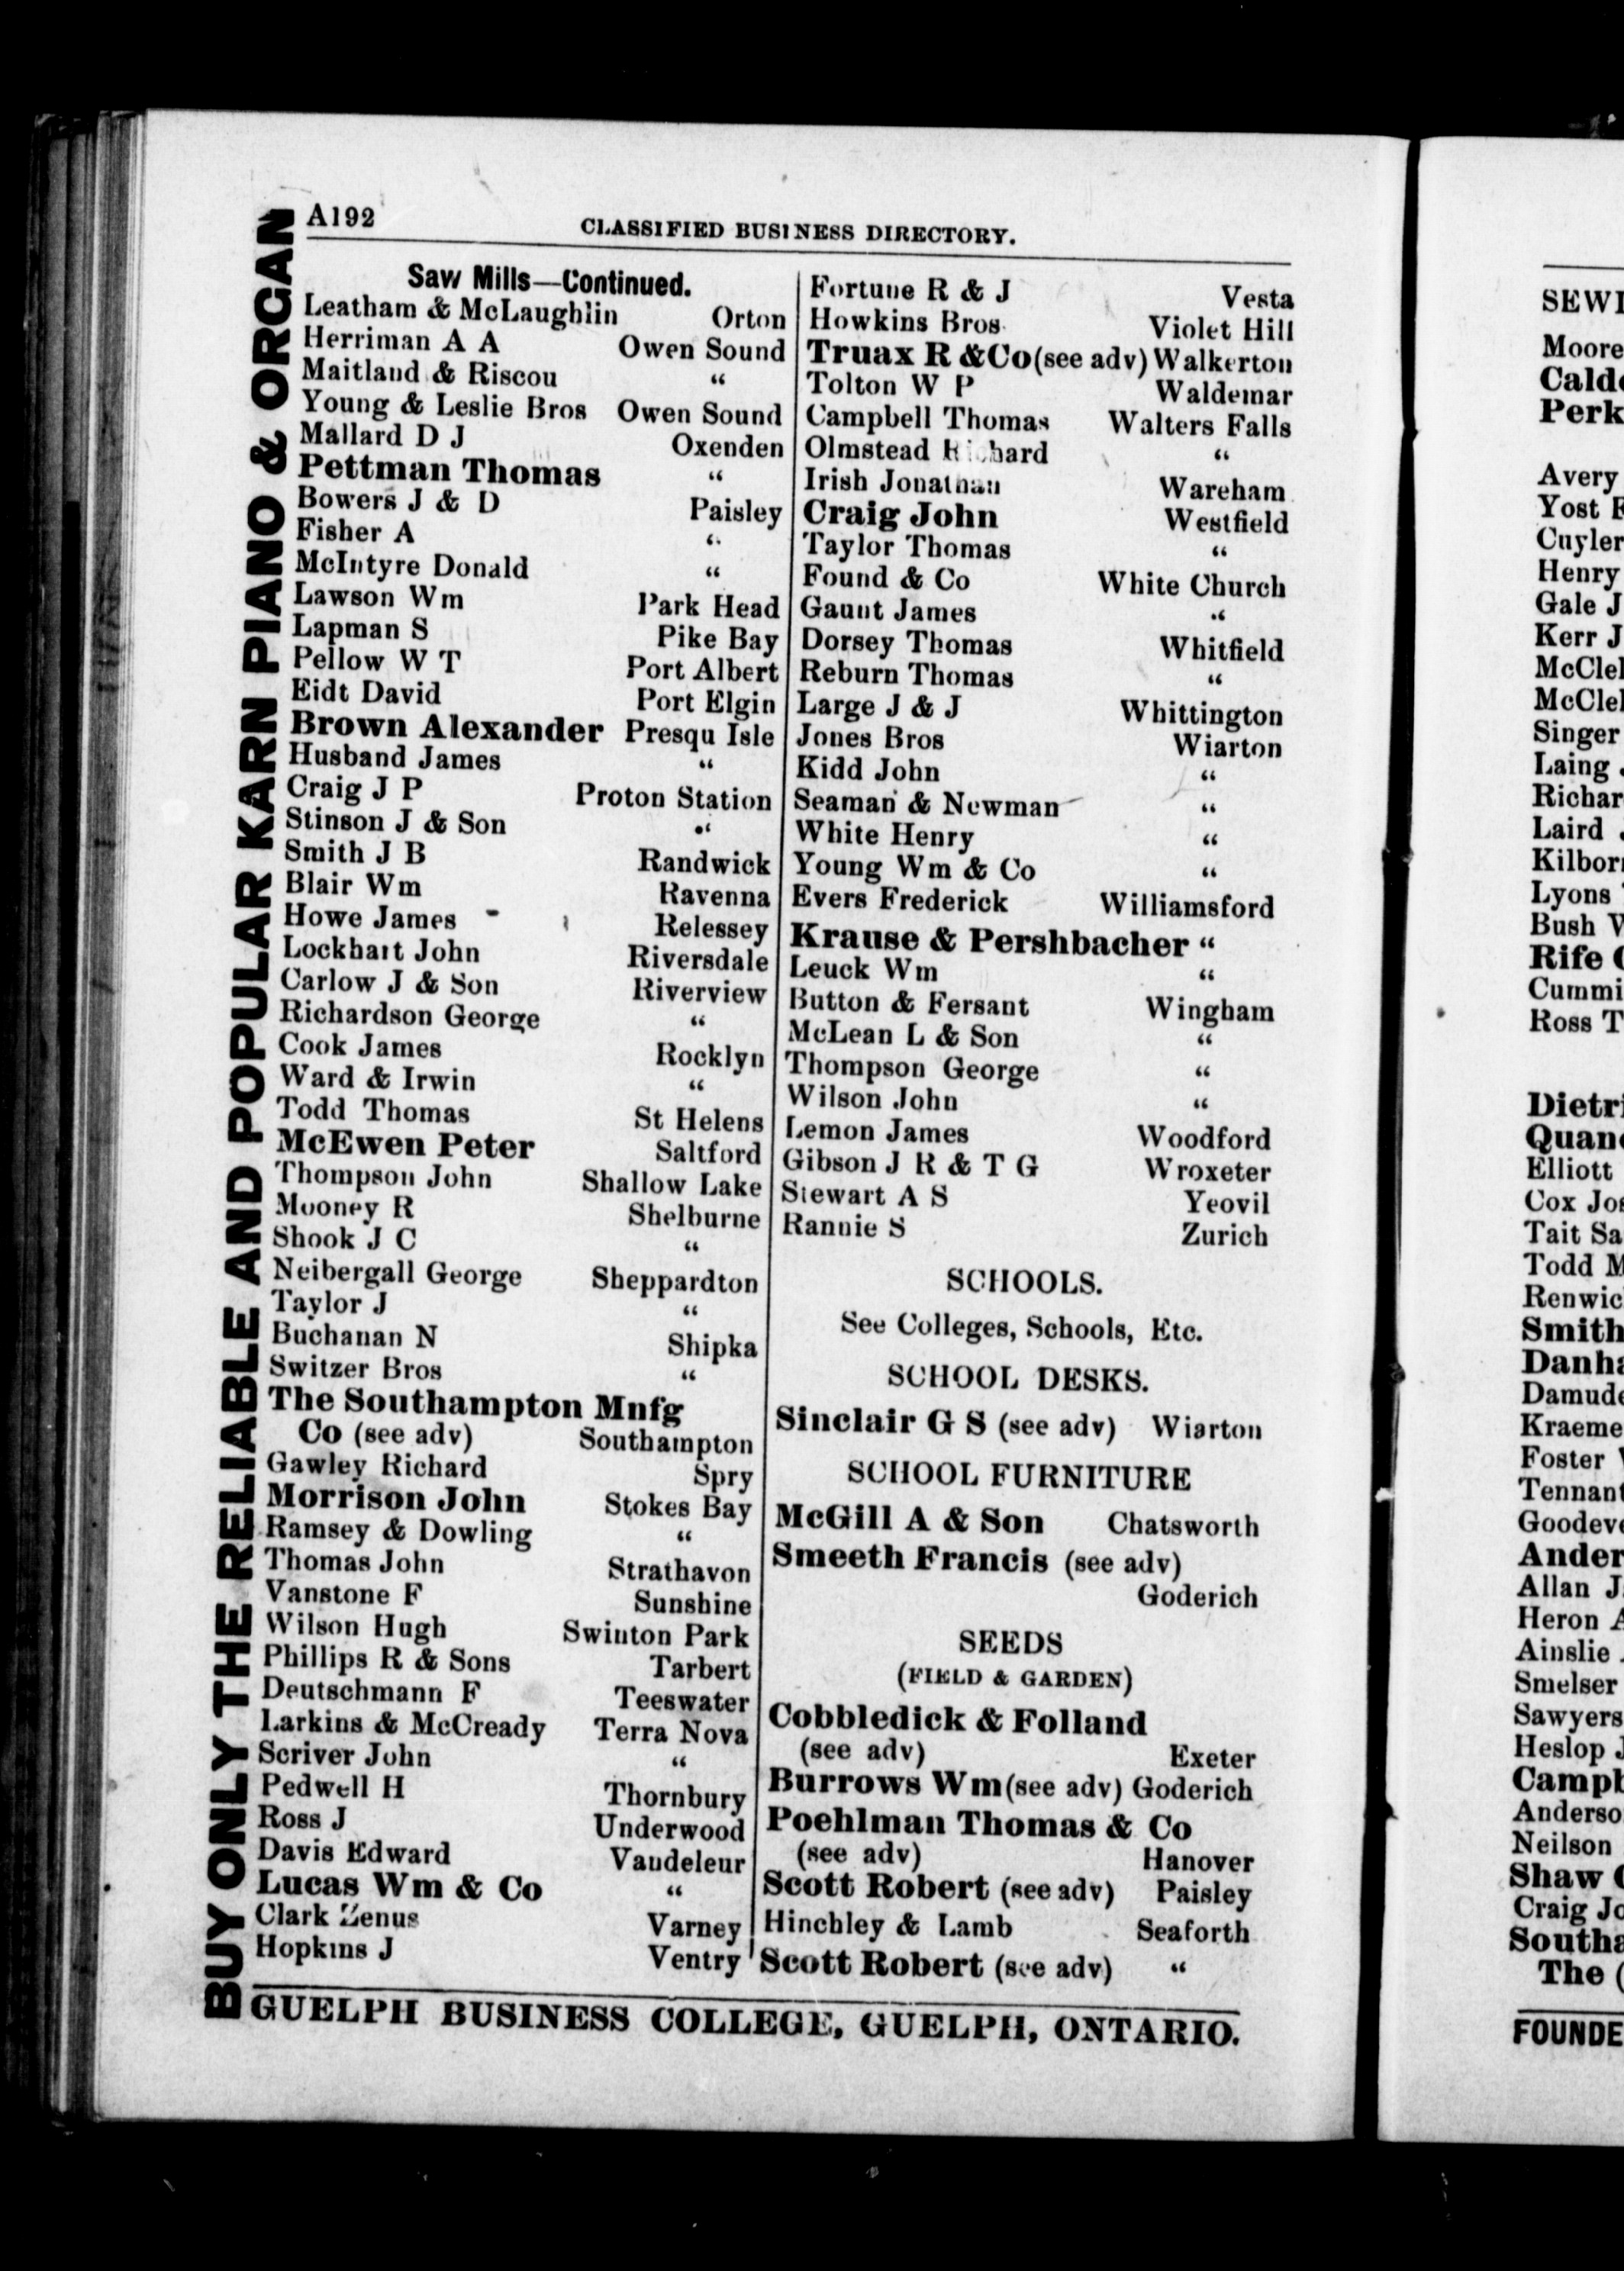 A192
CLASSIFIED BUSINESS DIRECTORY.
BUY ONLY THE RELIABLE AND POPULAR KARN PIANO & ORGAN
Saw Mills—Continued.
Leatham & McLaughlin Orton
Herriman A A Owen Sound
Maitland & Riscou "
Young & Leslie Bros Owen Sound
Mallard D J Oxenden
Pettman Thomas "
Bowers J & D Paisley
Fisher A "
McIntyre Donald "
Lawson Wm Park Head
Lapman S Pike Bay
Pellow W T Port Albert
Eidt David Port Elgin
Brown Alexander Presqu Isle
Husband James "
Craig J P Proton Station
Stinson J & Son "
Smith J B Randwick
Blair Wm Ravenna
Howe James Relessey
Lockhart John Riversdale
Carlow J & Son Riverview
Richardson George "
Cook James Rocklyn
Ward & Irwin "
Todd Thomas St Helens
McEwen Peter Saltford
Thompson John Shallow Lake
Mooney R Shelburne
Shook J C "
Neibergall George Sheppardton
Taylor J "
Buchanan N Shipka
Switzer Bros "
The Southampton Mnfg
Co (see adv) Southampton
Gawley Richard Spry
Morrison John Stokes Bay
Ramsey & Dowling "
Thomas John Strathavon
Vanstone F Sunshine
Wilson Hugh Swinton Park
Phillips R & Sons Tarbert
Deutschmann F Teeswater
Larkins & McCready Terra Nova
Scriver John "
Pedwell H Thornbury
Ross J Underwood
Davis Edward Vandeleur
Lucas Wm & Co "
Clark Zenus Varney
Hopkins J Ventry
Fortune R & J Vesta
Howkins Bros Violet Hill
Truax R &Co(see adv) Walkerton
Tolton W P Waldemar
Campbell Thomas Walters Falls
Olmstead Richard "
Irish Jonathan Wareham
Craig John Westfield
Taylor Thomas "
Found & Co White Church
Gaunt James "
Dorsey Thomas Whitfield
Reburn Thomas "
Large J & J Whittington
Jones Bros Wiarton
Kidd John "
Seaman & Newman "
White Henry "
Young Wm & Co "
Evers Frederick Williamsford
Krause & Pershbacher "
Leuck Wm "
Button & Fersant Wingham
McLean L & Son "
Thompson George "
Wilson John "
Lemon James Woodford
Gibson J R & T G Wroxeter
Stewart A S Yeovil
Rannie S Zurich
SCHOOLS.
See Colleges, Schools, Etc.
SCHOOL DESKS.
Sinclair G S (see adv) Wiarton
SCHOOL FURNITURE
McGill A & Son Chatsworth
Smeeth Francis (see adv)
Goderich
SEEDS
(FIELD & GARDEN)
Cobbledick & Folland
(see adv) Exeter
Burrows Wm(see adv) Goderich
Poehlman Thomas & Co
(see adv) Hanover
Scott Robert (see adv) Paisley
Hinchley & Lamb Seaforth
Scott Robert (see adv) "
GUELPH BUSINESS COLLEGE, GUELPH, ONTARIO.
SEWI
Moore
Calde
Perk
Avery
Yost
Cuyler
Henry
Gale J
Kerr J
McClel
McClel
Singer
Laing
Richar
Laird
Kilborn
Lyons
Bush
Rife
Cummi
Ross T
Dietri
Quan
Elliott
Cox Jos
Tait Sa
Todd M
Renwic
Smith
Danha
Damude
Kraeme
Foster
Tennant
Goodeve
Ander
Allan J
Heron A
Ainslie
Smelser
Sawyers
Heslop J
Campb
Anderso
Neilson
Shaw
Craig Jo
Southa
The
FOUNDE